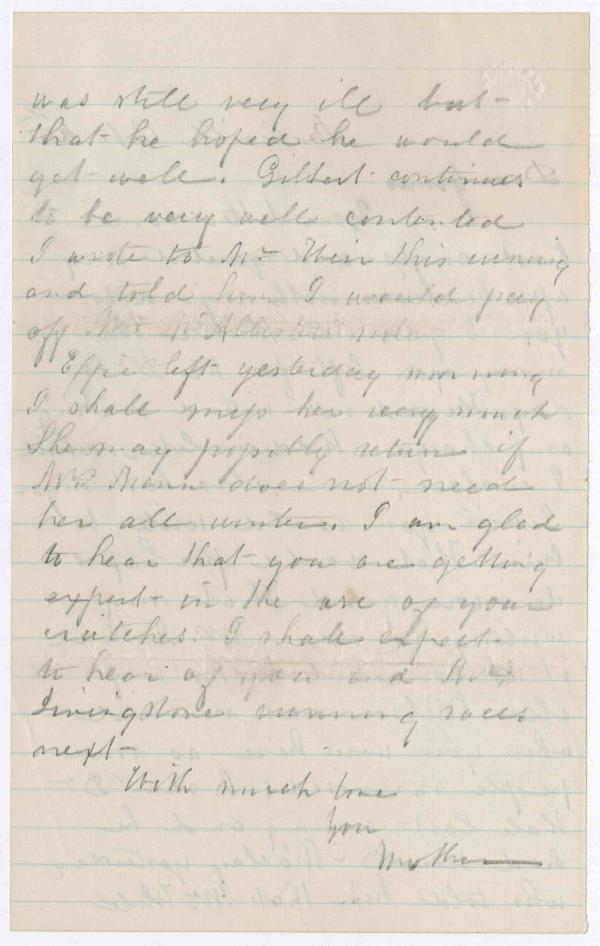 was still very ill but
that he hoped he would
get well. Gilbert continues
to be very well contented
I wrote to Mr Weir this evening
and told him I would pay
off Mr McAllister's note
Effie left yesterday morning
I shall miss her very much
She may possibly return if
Mrs Mann does not need
her all winter. I am glad
to hear that you are getting
expert in the use of your
crutches. I shall expect
to hear of you and Mrs
Livingstone running races
next
With much love
Your
Mother